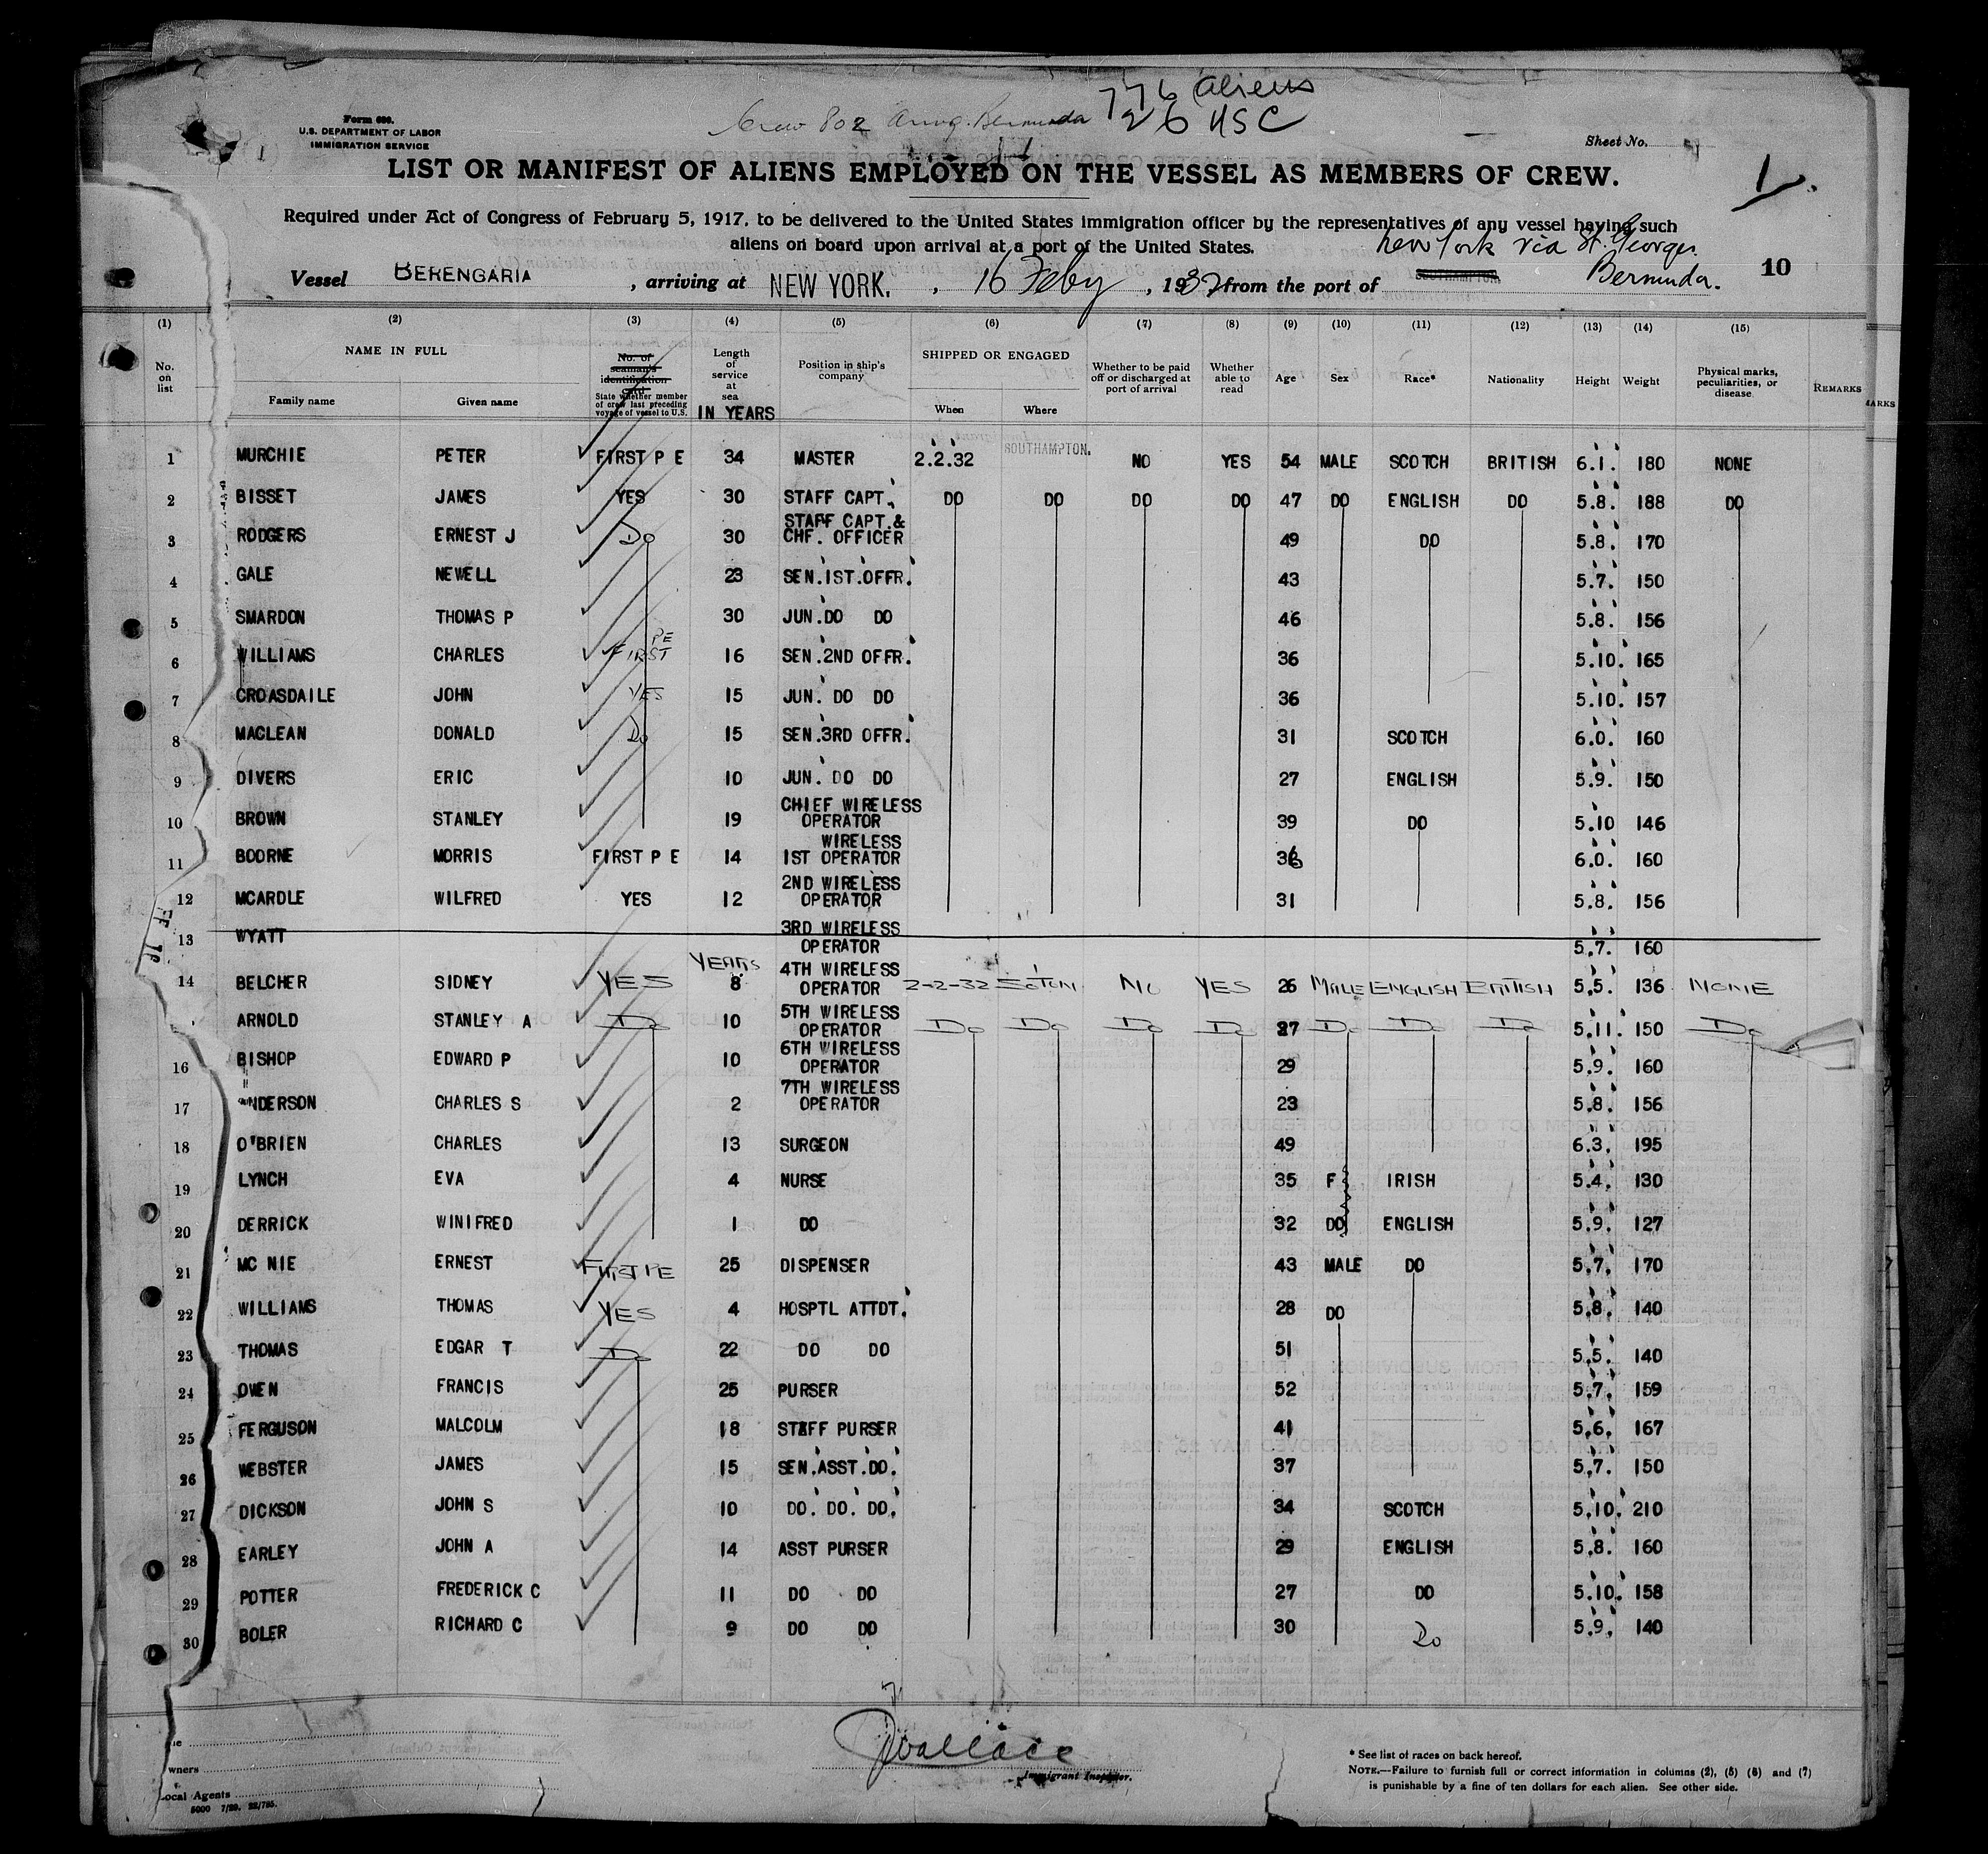 776 aliens
Crew 802 Arrvg. Bermuda 26 USC
Form 680.
U.S. DEPARTMENT OF LABOR
IMMIGRATION SERVICE
Sheet No.
LIST OR MANIFEST OF ALIENS EMPLOYED ON THE VESSEL AS MEMBERS OF CREW.
1
Required under Act of Congress of February 5, 1917, to be delivered to the United States immigration officer by the representatives of any vessel having such
aliens on board upon arrival at a port of the United States.
New York via St. Georges
Vessel BERENGARIA, arriving at NEW YORK., 16 Feby, 1932 from the port of SOUTHAMPTON. Bermuda. 10
(1) (2) (3) (4) (5) (6) (7) (8) (9) (10) (11) (12) (13) (14) (15)
No. on list NAME IN FULL Family name Given name No. of seaman's identification card State whether member of crew last preceding voyage of vessel to U.S. Length of service at sea IN YEARS Position in ship's company SHIPPED OR ENGAGED When Where Whether to be paid off or discharged at port of arrival Whether able to read Age Sex Race* Nationality Height Weight Physical marks, peculiarities, or disease REMARKS
ARKS
1 MURCHIE PETER FIRST P E 34 MASTER 2.2.32 SOUTHAMPTON. NO YES 54 MALE SCOTCH BRITISH 6.1. 180 NONE
2 BISSET JAMES YES 30 STAFF CAPT. DO DO DO DO 47 DO ENGLISH DO 5.8. 188 DO
3 RODGERS ERNEST J Do 30 STAFF CAPT.& CHF. OFFICER 49 DO 5.8. 170
4 GALE NEWELL 23 SEN.1ST.OFFR. 43 5.7. 150
5 SMARDON THOMAS P 30 JUN.DO DO 46 5.8. 156
6 WILLIAMS CHARLES FIRST PE 16 SEN.2ND OFFR. 36 5.10. 165
7 CROASDAILE JOHN YES 15 JUN. DO DO 36 5.10. 157
8 MACLEAN DONALD Do 15 SEN.3RD OFFR. 31 SCOTCH 6.0. 160
9 DIVERS ERIC 10 JUN. DO DO 27 ENGLISH 5.9. 150
10 BROWN STANLEY 19 CHIEF WIRELESS OPERATOR 39 DO 5.10 146
11 BOORNE MORRIS FIRST P E 14 WIRELESS 1ST OPERATOR 36 6.0. 160
12 MCARDLE WILFRED YES 12 2ND WIRELESS OPERATOR 31 5.8. 156
13 WYATT 3RD WIRELESS OPERATOR 5.7. 160
14 BELCHER SIDNEY YES YEARS 8 4TH WIRELESS OPERATOR 2-2-32 SOTON NO YES 26 MALE ENGLISH BRITISH 5.5. 136 NONE
ARNOLD STANLEY A Do 10 5TH WIRELESS OPERATOR Do Do Do Do 27 Do Do Do 5.11. 150 Do
16 BISHOP EDWARD P 10 6TH WIRELESS OPERATOR 29 5.9. 160
17 ANDERSON CHARLES S 2 7TH WIRELESS OPERATOR 23 5.8. 156
18 O'BRIEN CHARLES 13 SURGEON 49 6.3. 195
19 LYNCH EVA 4 NURSE 35 F IRISH 5.4. 130
20 DERRICK WINIFRED 1 DO 32 DO ENGLISH 5.9. 127
21 MC NIE ERNEST FIRST PE 25 DISPENSER 43 MALE DO 5.7. 170
22 WILLIAMS THOMAS YES 4 HOSPTL ATTDT. 28 DO 5.8. 140
23 THOMAS EDGAR T Do 22 DO DO 51 5.5. 140
24 OWEN FRANCIS 25 PURSER 52 5.7. 159
25 FERGUSON MALCOLM 18 STAFF PURSER 41 5.6. 167
26 WEBSTER JAMES 15 SEN.ASST.DO. 37 5.7. 150
27 DICKSON JOHN S 10 DO. DO. DO. 34 SCOTCH 5.10. 210
28 EARLEY JOHN A 14 ASST PURSER 29 ENGLISH 5.8. 160
29 POTTER FREDERICK C 11 DO DO 27 DO 5.10. 158
30 BOLER RICHARD C 9 DO DO 30 Do 5.9. 140
Wallace
Immigrant Inspector.
wners
ocal Agents
5000 7/29. 22/795.
* See list of races on back hereof.
NOTE.—Failure to furnish full or correct information in columns (2), (5) (6) and (7)
is punishable by a fine of ten dollars for each alien. See other side.